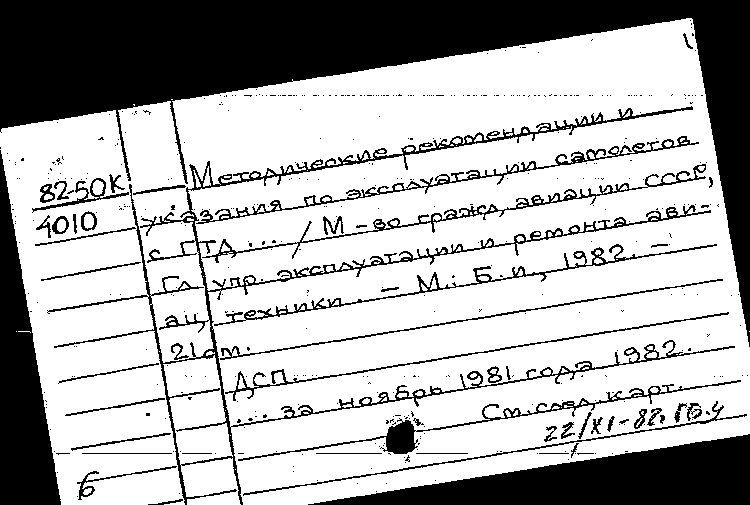 82-50К Методические рекомендации и
4010 указания по эксплуатации самолетов
с ГТД ... / М-во гражд. авиации СССР,
Гл. упр. эксплуатации и ремонта ави-
ац. техники. - М.: Б. и., 1982. -
21 см.
ДСП.
... за ноябрь 1981 года 1982.
См. след. карт.
22/XI-82.
б